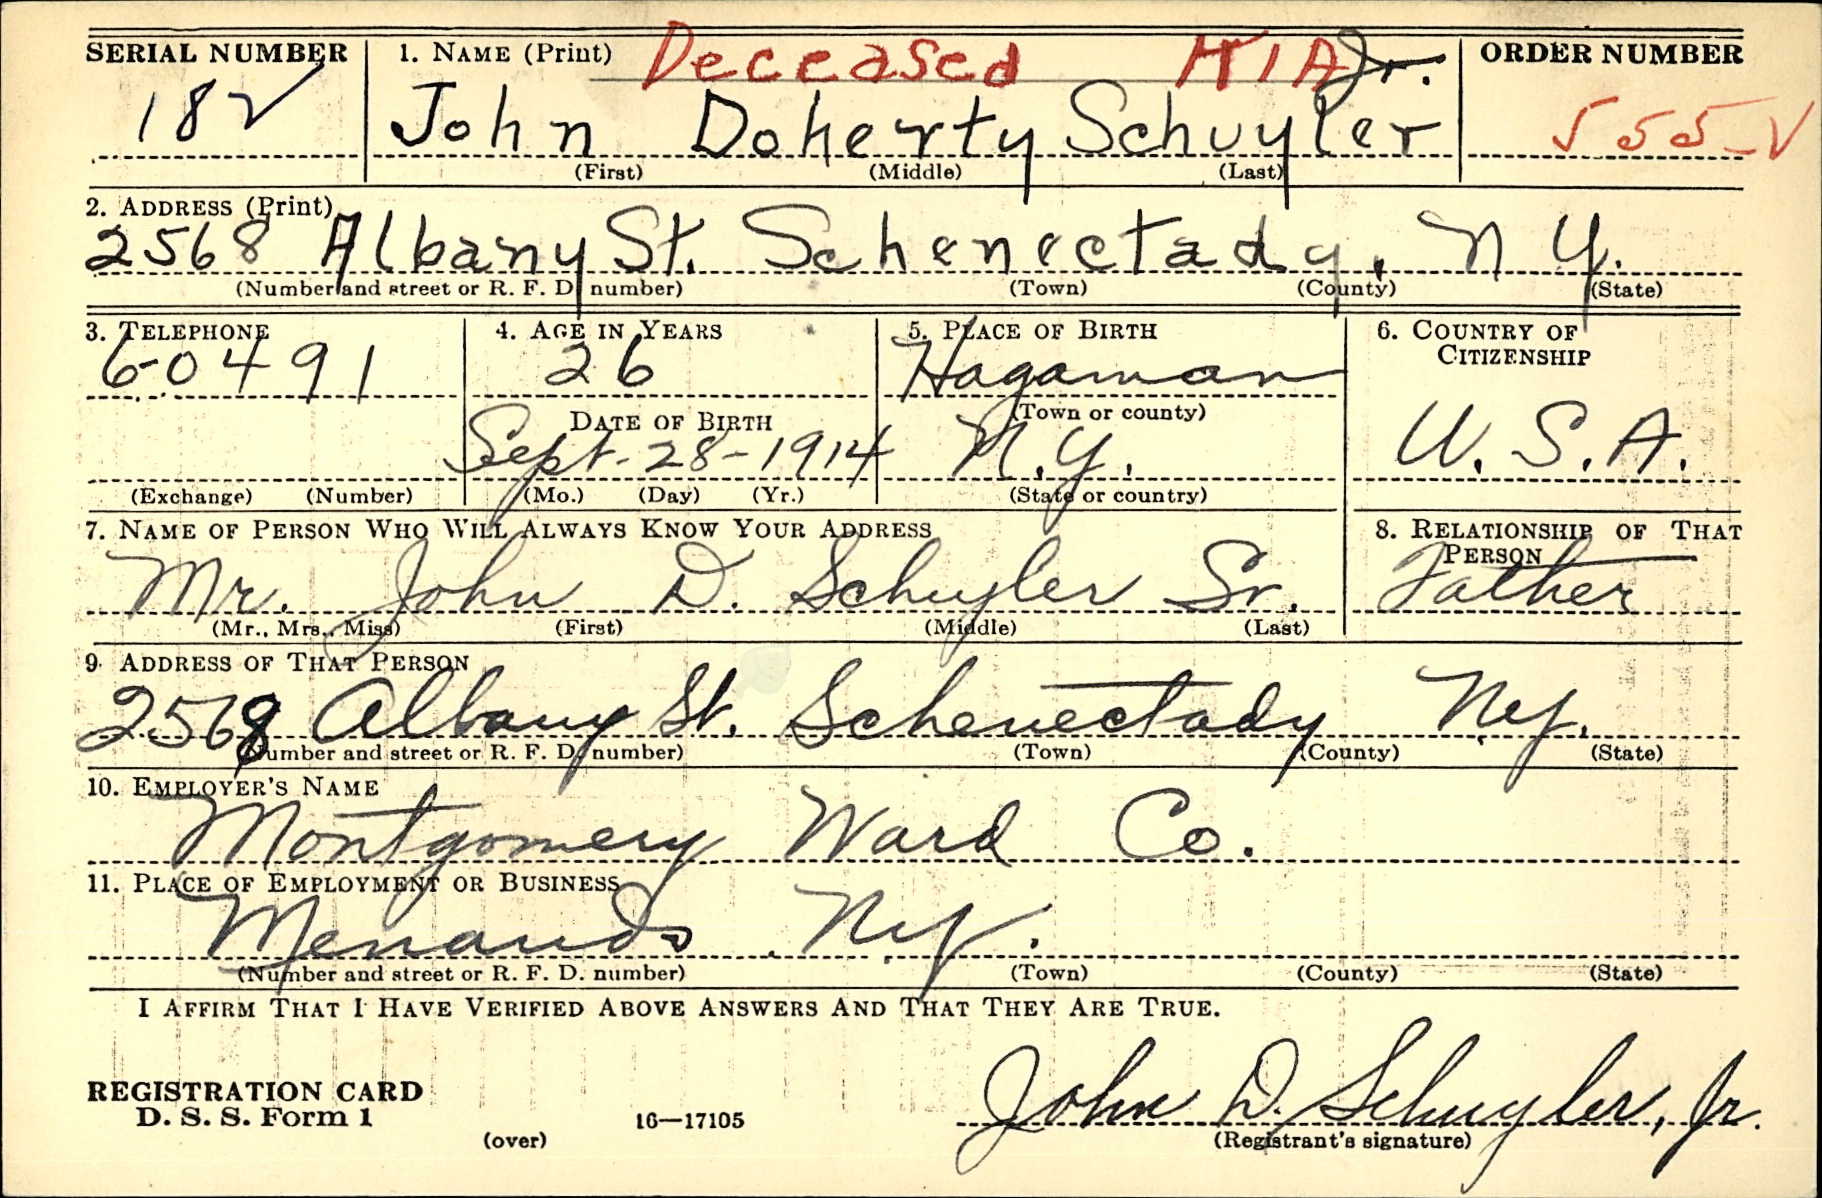 SERIAL NUMBER
18 ✓
1. NAME (Print)
Deceased KIA Jr.
John Doherty Schuyler
(First) (Middle) (Last)
ORDER NUMBER
555-✓
2. ADDRESS (Print)
2568 Albany St. Schenectady, N Y.
(Number and street or R. F. D. number) (Town) (County) (State)
3. TELEPHONE
6-0491
(Exchange) (Number)
4. AGE IN YEARS
26
DATE OF BIRTH
Sept. 28-1914
(Mo.) (Day) (Yr.)
5. PLACE OF BIRTH
Hagaman
(Town or county)
N.Y.
(State or country)
6. COUNTRY OF
CITIZENSHIP
U.S.A.
7. NAME OF PERSON WHO WILL ALWAYS KNOW YOUR ADDRESS
Mr. John D. Schuyler Sr.
(Mr., Mrs., Miss) (First) (Middle) (Last)
8. RELATIONSHIP OF THAT
PERSON
Father
9. ADDRESS OF THAT PERSON
2568 Albany St. Schenectady N.y.
(Number and street or R. F. D. number) (Town) (County) (State)
10. EMPLOYER'S NAME
Montgomery Ward Co.
11. PLACE OF EMPLOYMENT OR BUSINESS
Menands N.y.
(Number and street or R. F. D. number) (Town) (County) (State)
I AFFIRM THAT I HAVE VERIFIED ABOVE ANSWERS AND THAT THEY ARE TRUE.
REGISTRATION CARD
D. S. S. Form 1
(over)
16—17105
John D. Schuyler, Jr.
(Registrant's signature)